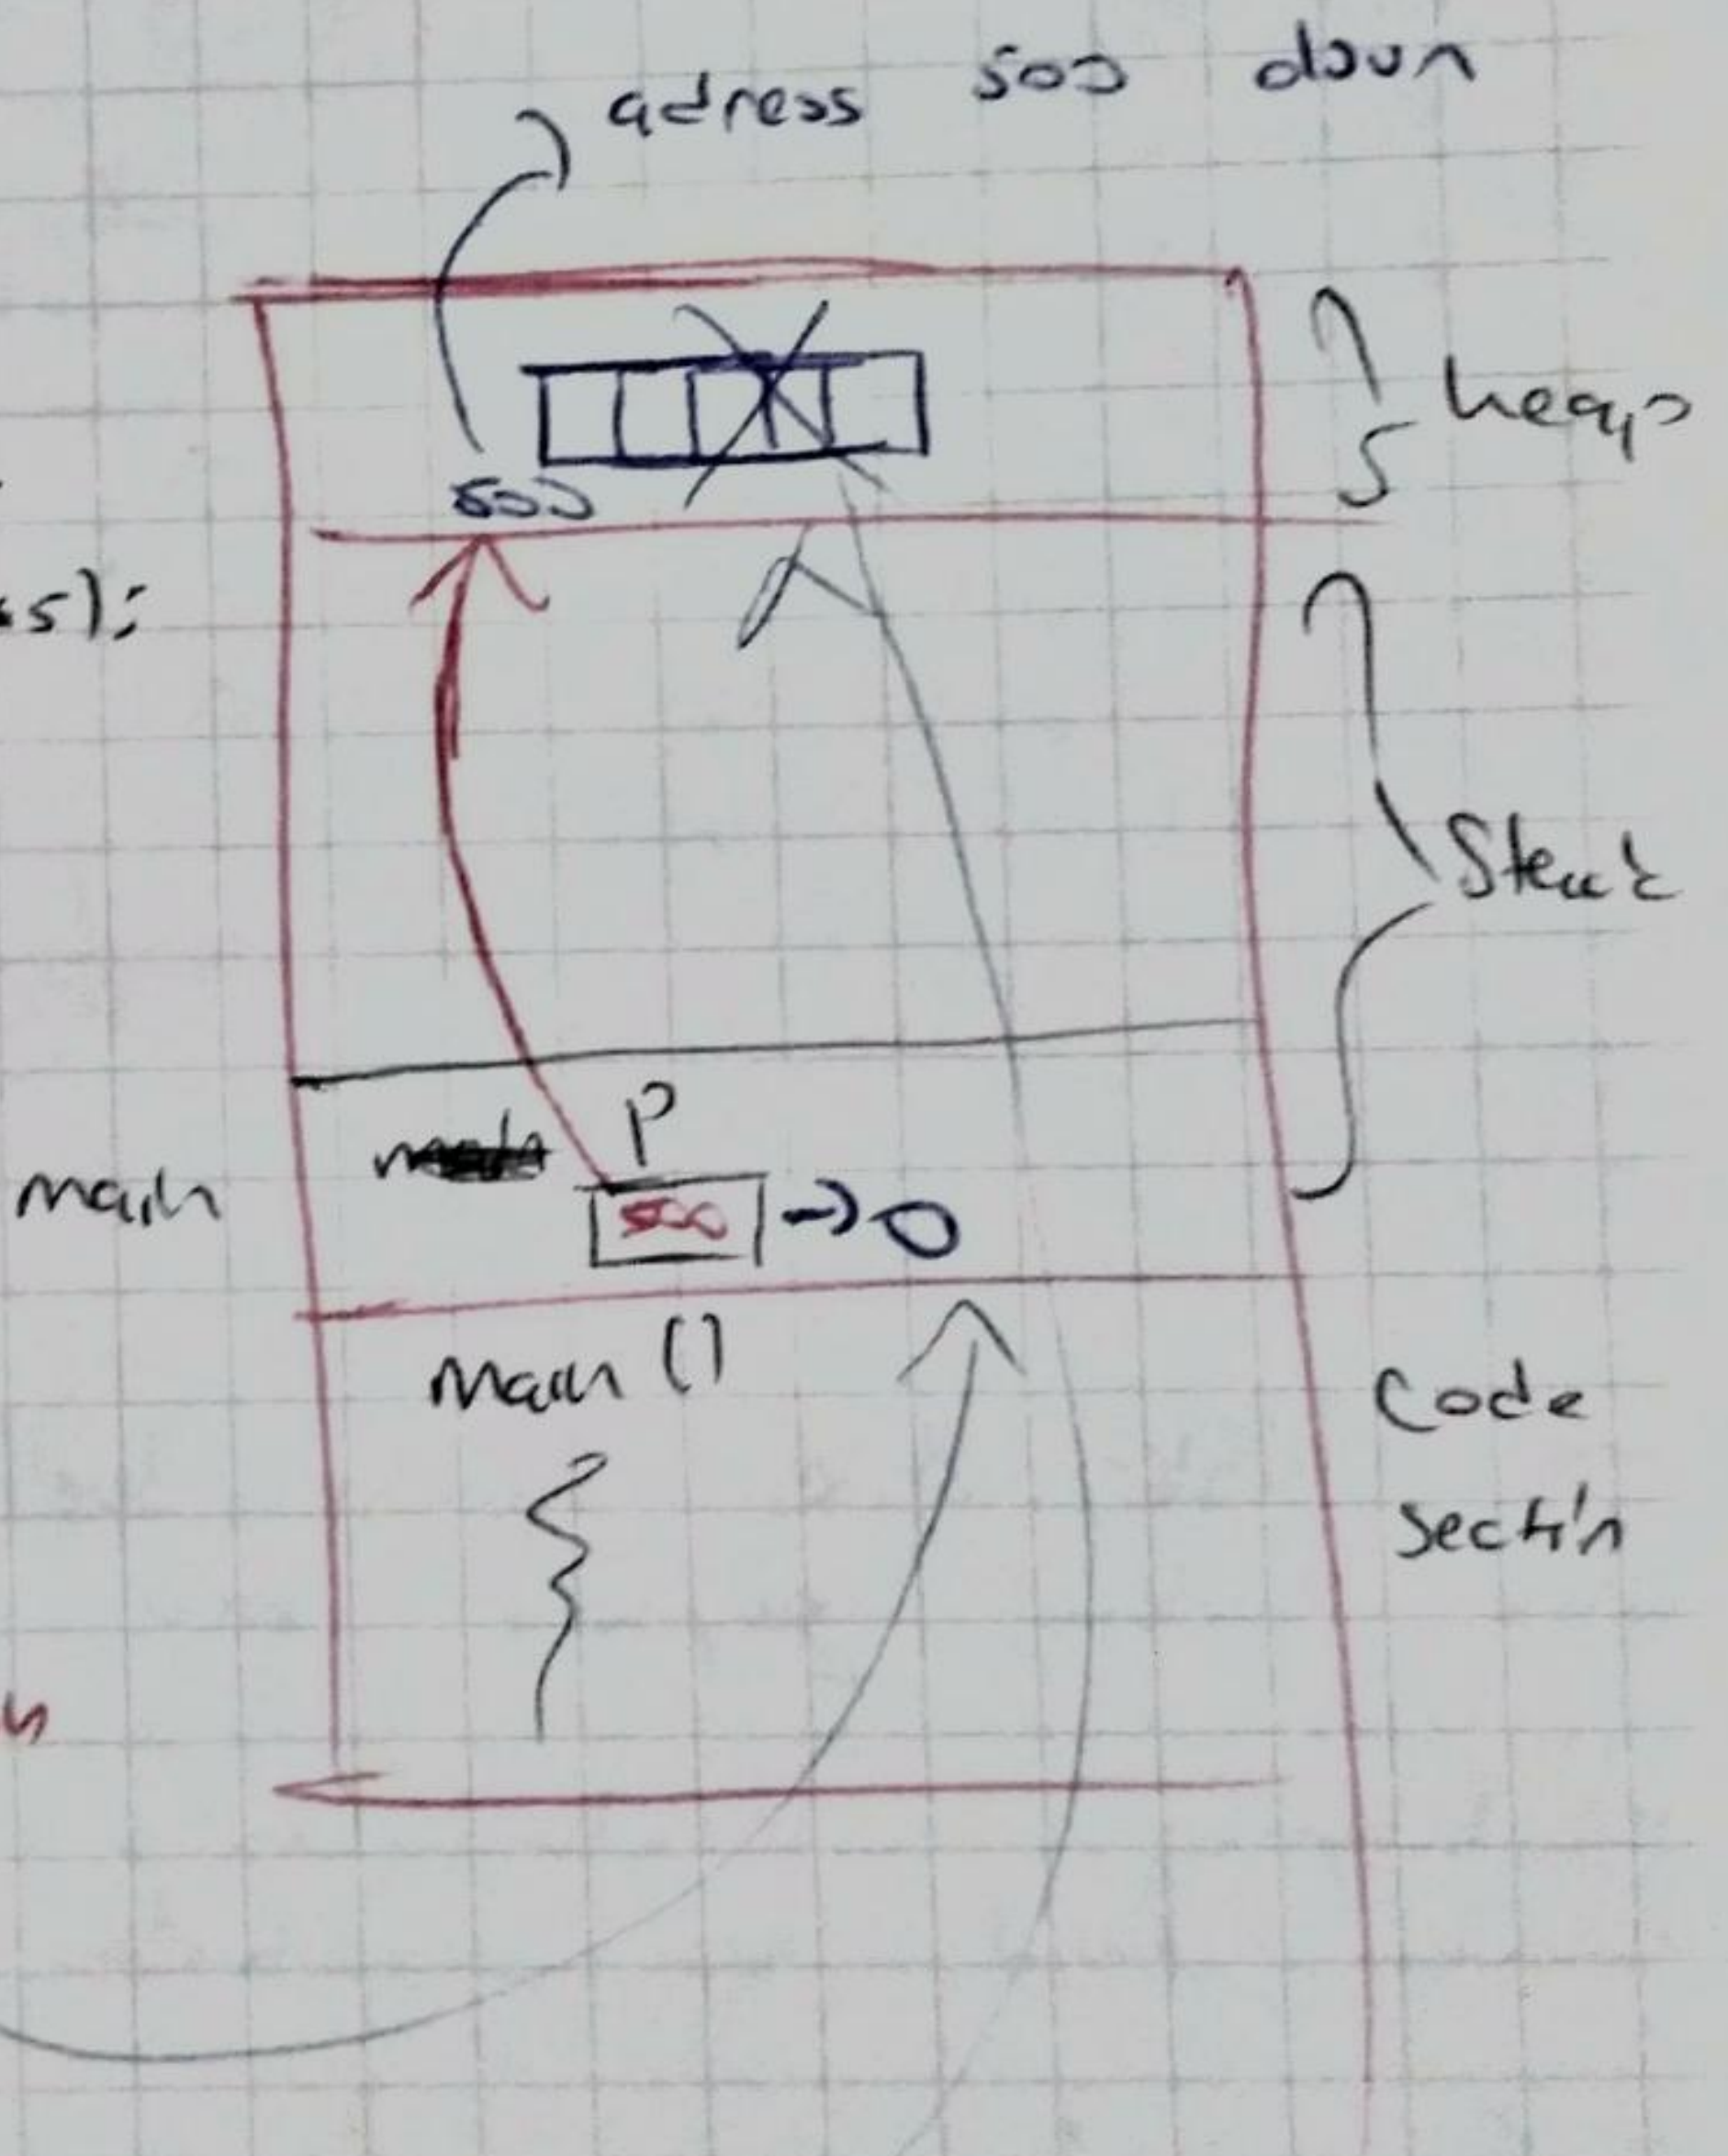 adress 500 down
heap
500
*5);
Stack
P
main
500 → 0
main ()
Code
section